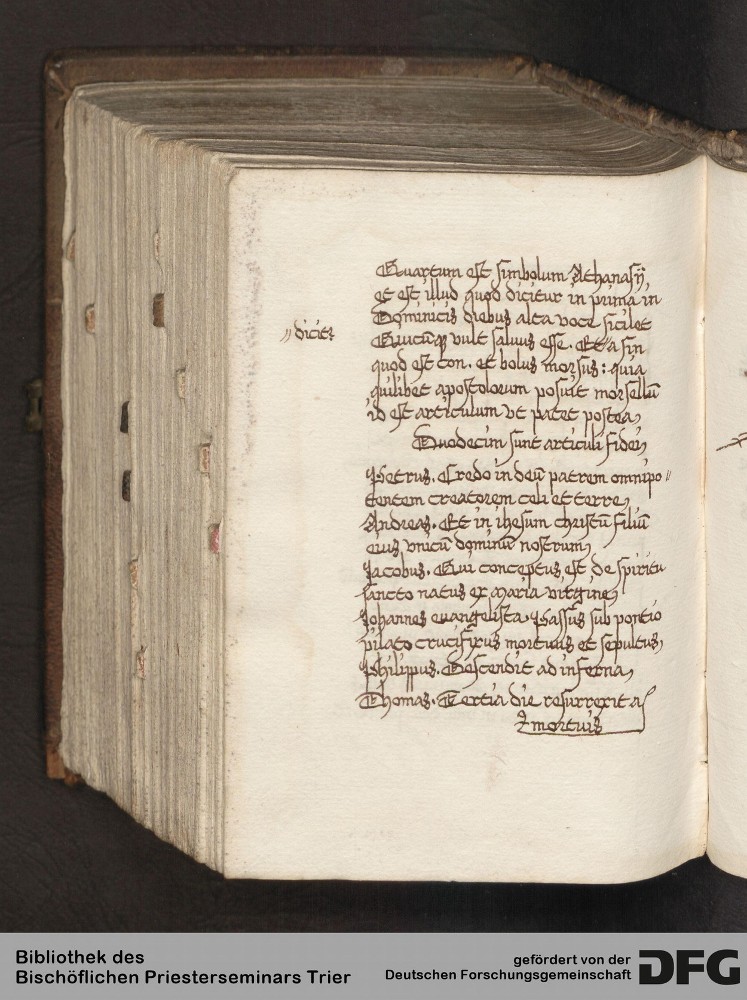 Quartum est simbolum Athanasÿ
et est illud quod dicitur in prima in
Dominicis diebus alta voce scilicet
"dicit
Quicūq vult saluus esse. Et a sin
quod est con. et bolus morsus: quia
quilibet apostolorum posuit morsellū
id est articulum vt patet postea,
Duodecim sunt articuli fidei,
Petrus. Credo in deū patrem omnipo"
tentem creatorem celi et terre,
Andreas. Et in ihesum christū filiū
eius vnicū dominū nostrum,
Jacobus. Qui conceptus est de spiritu
sancto natus ex maria virgine,
Johannes euangelista. Passus sub pontio
pilato crucifixus mortuus et sepultus,
Philippus. Descendit ad inferna,
Thomas. Tertia die resurrexit a
mortuis
Bibliothek des
Bischöflichen Priesterseminars Trier
gefördert von der
Deutschen Forschungsgemeinschaft
DFG